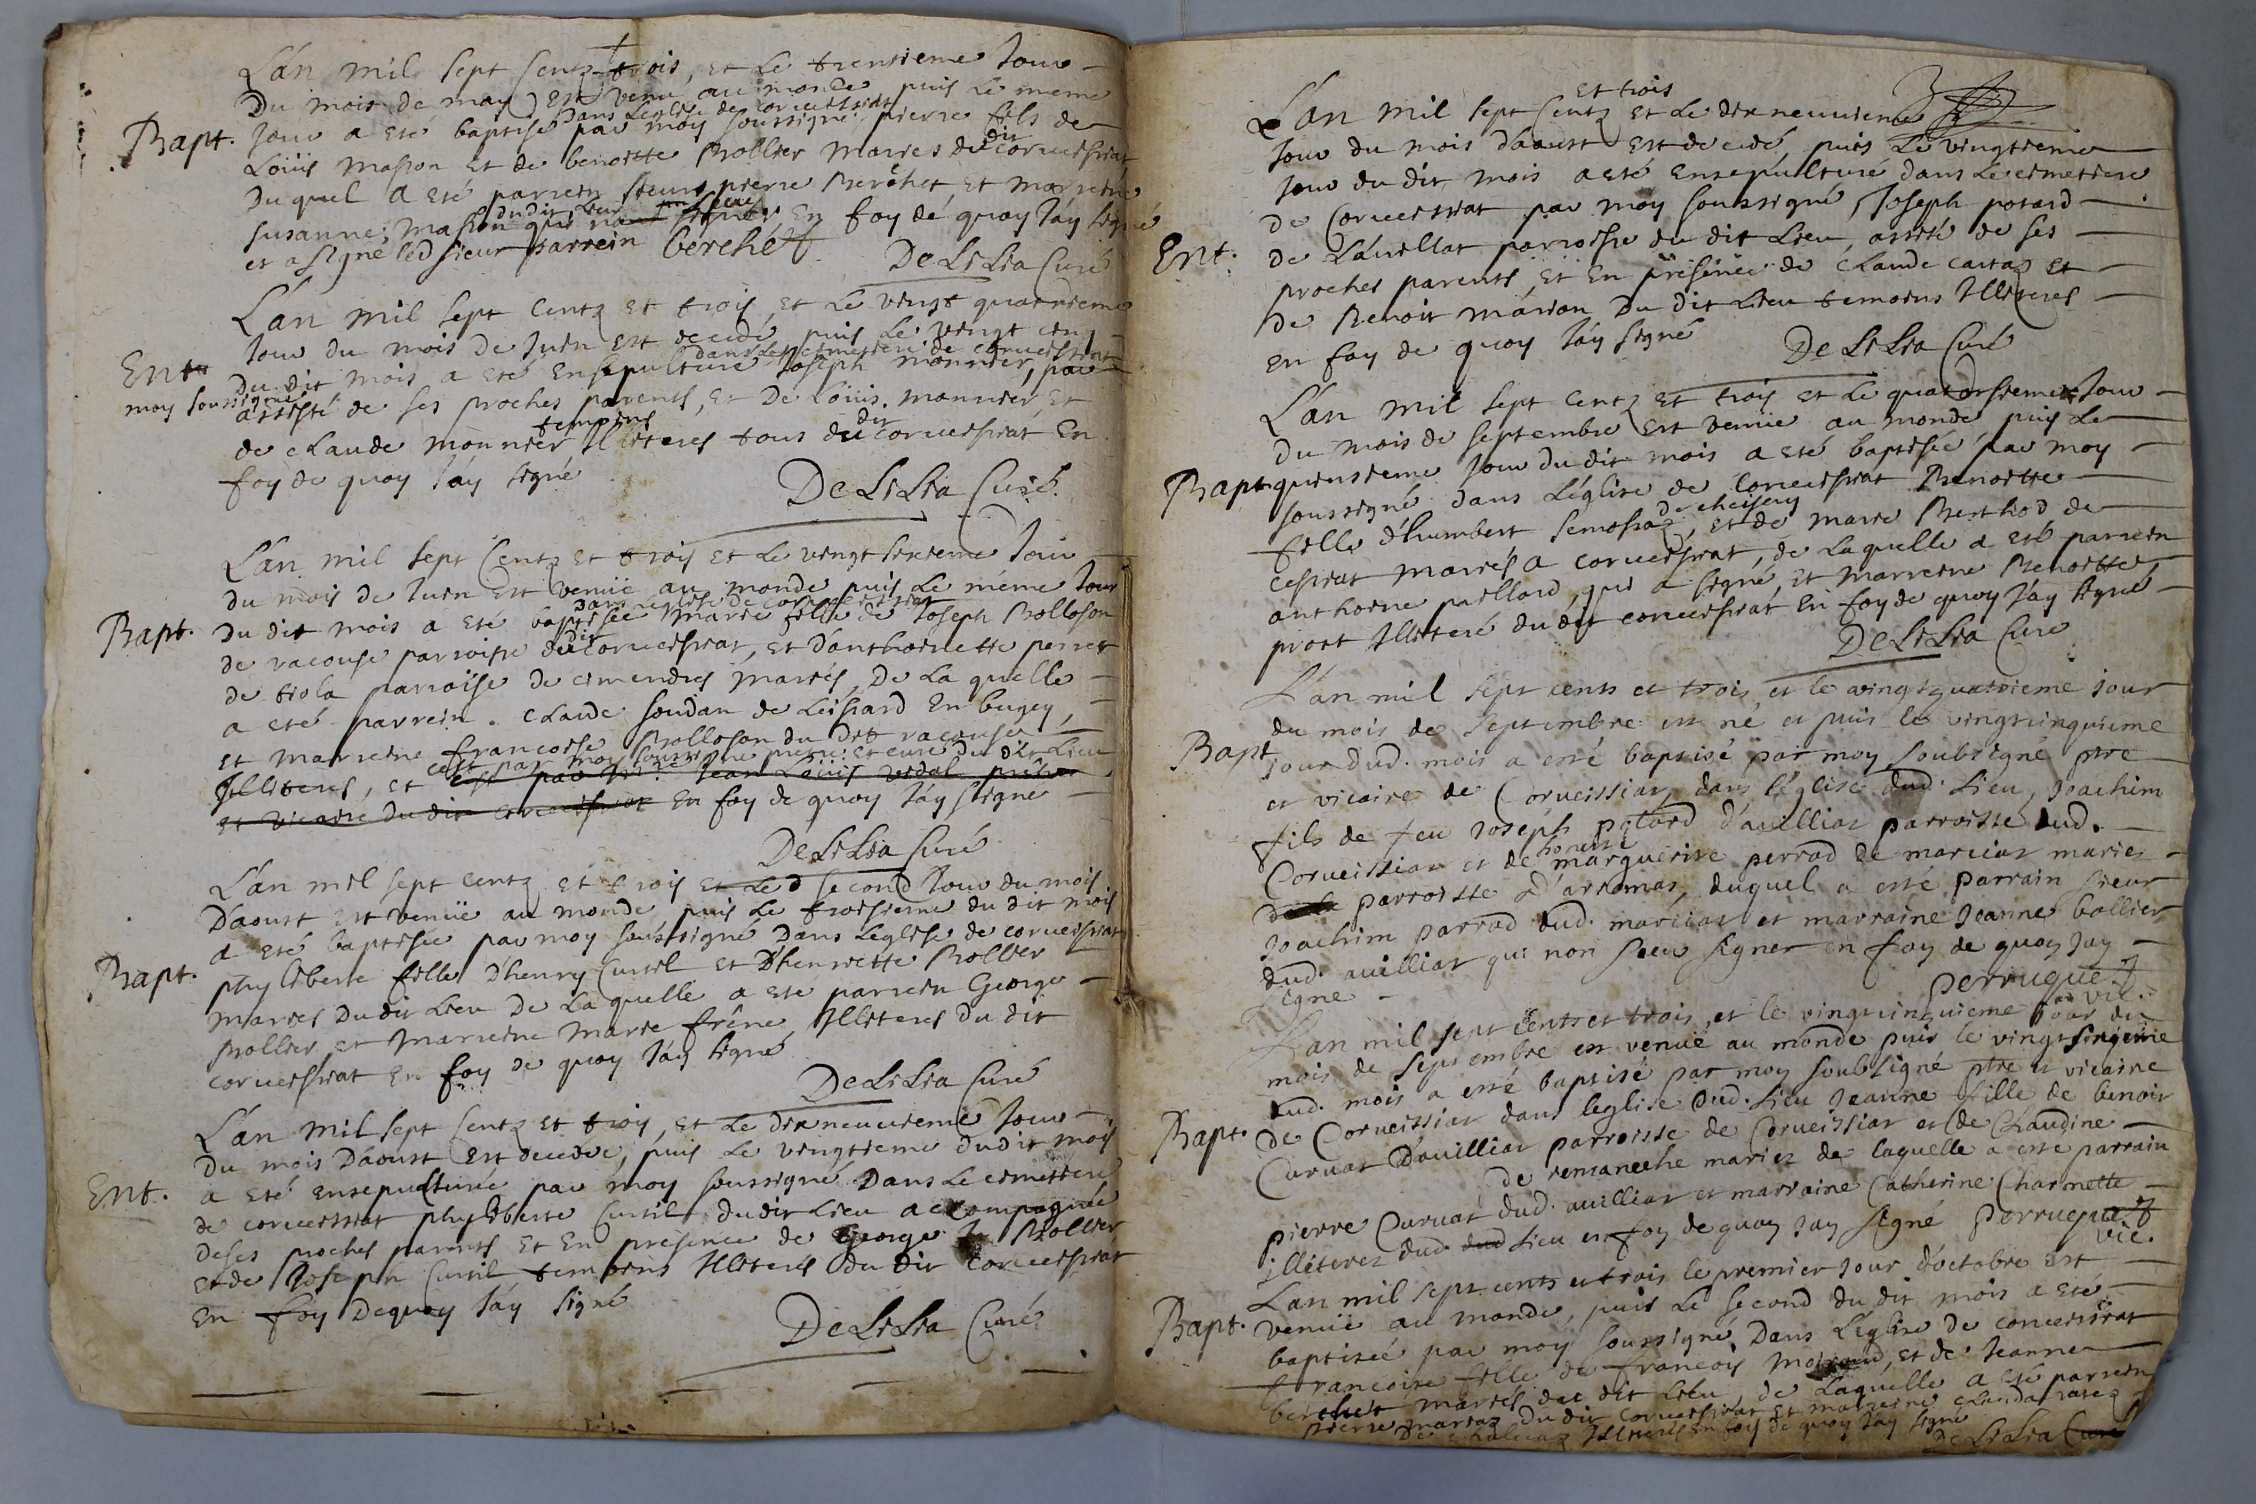 L'an mil sept Centz trois, et le trensieme Jour
Du mois de may est venu au monde puis le meme
dans l'eglise de corveissiat
Bapt. Jour a eté baptisé par moy soussigné pierre fils de
Loüis masson et de benoitte Bollier mariés du dit corveissiat
Duquel a eté parrein sieur pierre Berchet, et marreine
susanne masson dudit lieu En foy de quoy J'ay signé
et a signé led sieur parrein Berchet
De LiLia Curé
L'an mil sept Centz et trois, et le vingt quatrieme
Jour du mois de Juin est decedé puis le vingt cinq
dans le cimetiere de corveissiat
Ent. Du dit mois a eté Ensepulturé Joseph monnier, par
moy soussigné assisté de ses proches parents, et De Loüis monnier, et
de claude monnier temoins Illiteres tous du dit corveissiat En
foy de quoy J'ay signé
De LiLia Curé
L'an mil sept Centz et trois et le vingt sixieme Jour
du mois de Juin est venüe au monde puis le méme Jour
dans l'eglise de corveissiat
Bapt. Du dit mois a eté baptisée marie fille de Joseph Bolloson
de racouse parroisse du dit corveissiat, et d'anthoinette perret
de tiola parroisse de cimendres mariés, De la quelle
a eté parrein claude soudan de Leissard En bugey,
et marreine francoise Bolloson du dit racouse
c'est par moy soussigné pretre et curé du dit Lieu
Illiteres, et c'est par Mre Jean Loüis vidal prêtre
et vicaire du dit corveissiat En foy de quoy J'ay signé
De LiLia Curé
L'an mil sept centz et trois et Le second Jour du mois
D'aoust est venüe au monde puis Le troisieme du dit mois
a eté baptisée par moy soussigné Dans L'eglise de corveissiat
Bapt. phyliberte fille D'henry Curtil et D'henriette Bollier
mariés Du dit Lieu De La quelle a ete parrein George
Bollier et marreine marie frêne, Illiteres du dit
corveissiat En foy de quoy J'ay signé
De LiLia Curé
L'an mil sept Centz et trois, et Le dixneuvieme Jour
Du mois D'aoust Est decedée, puis Le vingtieme du dit mois
Ent. a eté ensepulturée par moy soussigné Dans Le cimetiere
de corveissiat phyliberte Curtil du dit Lieu accompagnée
de ses proches parents Et En presence de George Bollier
et de Joseph Curtil temoins Illiterés du dit corveissiat
En foy De quoy J'ay signé
De LiLia Curé
et trois
L'an mil sept Centz et Le dixneuvieme
Jour du mois d'aoust Est decedé puis Le vingtieme
Jour du dit mois a eté Ensepulturé dans Le cimetiere
de corveissiat par moy soussigné, Joseph potard
Ent. de L'avillat parroisse du dit Lieu, assisté de ses
proches parents, Et En presence de claude cartaz et
de Benoit marion Du dit Lieu temoins Illiteres
En foy de quoy J'ay signé
De LiLia Curé
L'an mil sept centz et trois et Le quatorsieme Jour
Du mois de septembre Est venüe au monde puis Le
Bapt. quinsieme Jour du dit mois a eté baptisée par moy
soussigné dans L'église de Corveissiat Benoitte
fille d'humbert semossaz, et de marie Berthod de
cessiat mariés a corveissiat, de laquelle a eté parrein
anthoine paillard, qui a signé, et marreine Benoitte
prost Illiteré du dit corveissiat En foy de quoy J'ay signé
De LiLia Curé
L'an mil sept cents et trois et le vingt quatrieme jour
du mois de septembre est né et puis le vingt cinquieme
Bapt. jour dud. mois a esté baptisé par moy soubsigné ptre
et vicaire de Corveissiat dans l'église dud. Lieu, Joachim
fils de feu Joseph potard d'avilliat parroisse dud.
Corveissiat et de honeste marguerite perrad de marciat mariez
parroisse d'aromas, duquel a esté parrain sieur
Joachim parrad dud. marciat et marraine Jeanne bollier
dud. avilliat qui n'ont sceu signer en foy de quoy Jay
signé
perruque
vic.
L'an mil sept cents et trois, et le vingt cinquieme jour du
mois de septembre est venuë au monde puis le vingt sixieme
dud. mois a esté baptisé par moy soubsigné ptre et vicaire
Bapt. de Corveissiat dans l'eglise dud. Lieu Jeanne fille de benoit
Curvat d'avilliat parroisse de Corveissiat et de Claudine
de remaneche mariez de laquelle a esté parrain
pierre Curvat dud. avilliat et marraine Catherine Charmette
illiterez dud. dud Lieu en foy de quoy Jay signé perruque
vic.
L'an mil sept cents et trois le premier Jour d'octobre est
Bapt. venüe au monde, puis Le second du dit mois a eté
baptisée par moy soussigné, Dans L'église de corveissiat
francoise fille de francois et de Jeanne
berchet mariés du dit Lieu, de Laquelle a eté parrein
pierre marraz Du dit corveissiat et marreine
Illiterés En foy de quoy J'ay signé
De LiLia Curé